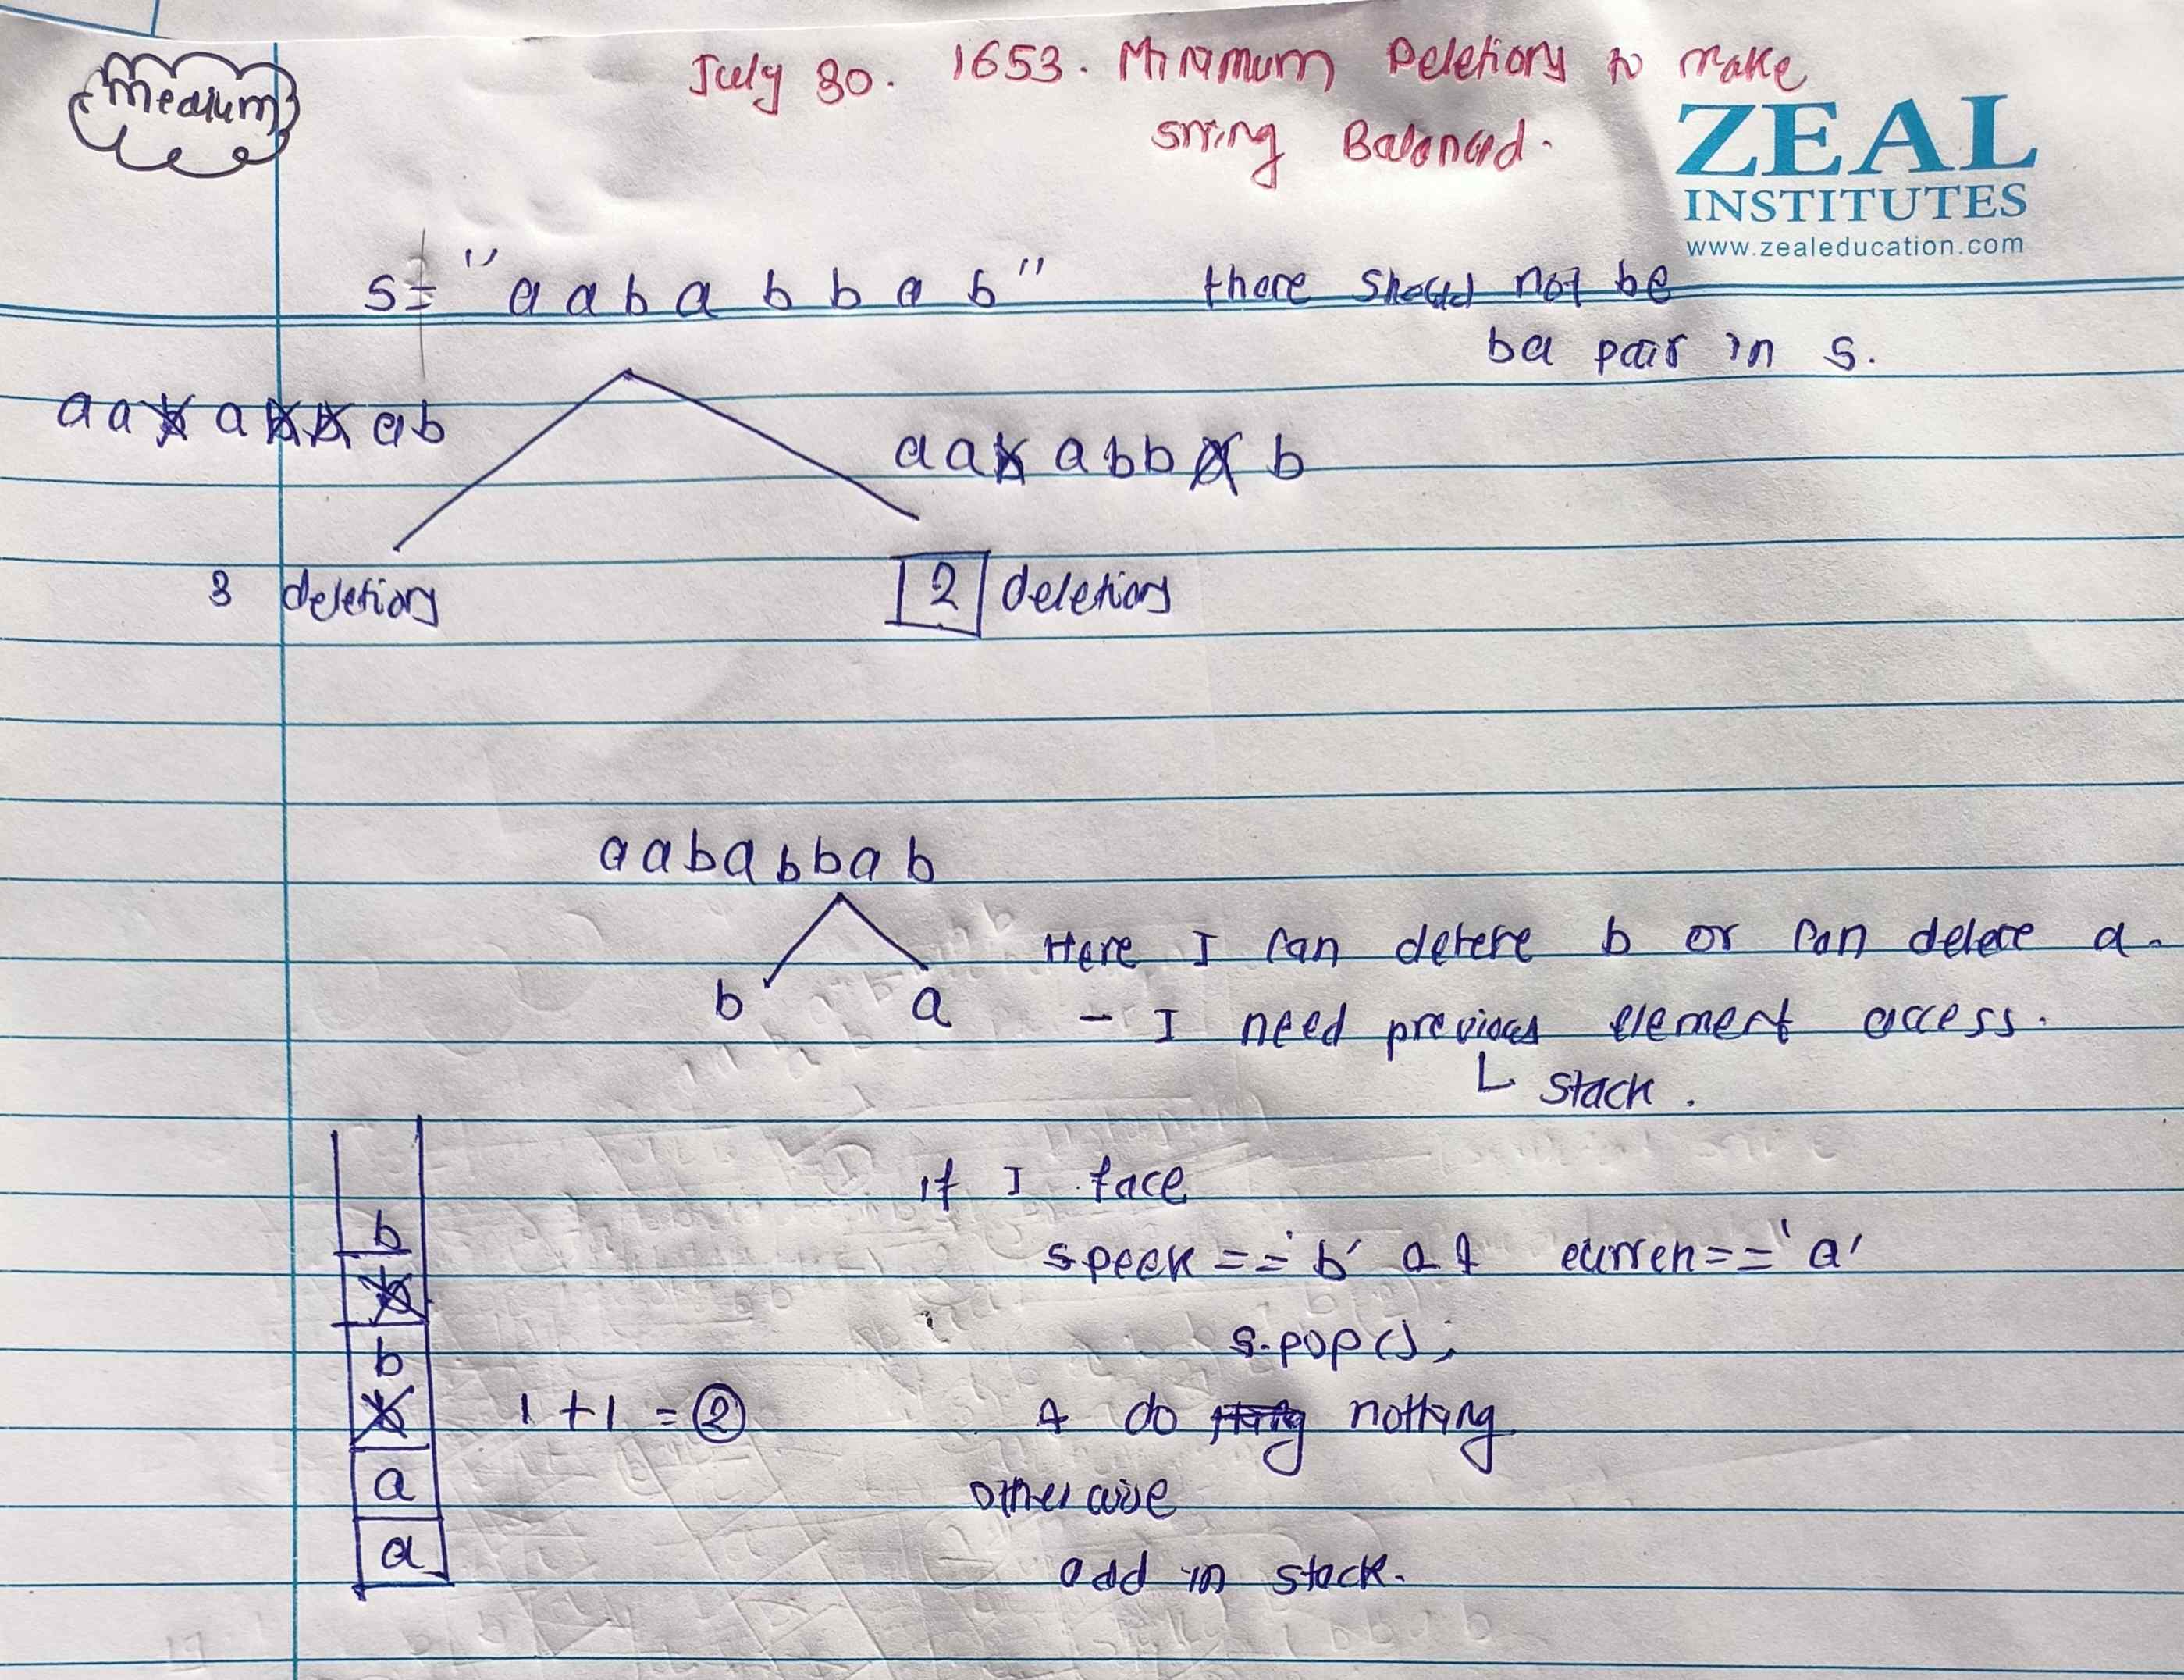 Medium
July 30. 1653. Minimum Deletions to make
string Balanced.
ZEAL
INSTITUTES
www.zealeducation.com
s= "aababbab" there should not be
ba pair in s.
aababbab
aababbab
3 deletions
2 deletions
aababbab
Here I can delete b or can delete a.
b a
- I need previous element access.
stack.
if I face
speek == 'b' && curren == 'a'
s.pop();
& do nothing
otherwise
add in stack.
b
b
b
b
a
a
1+1 = 2